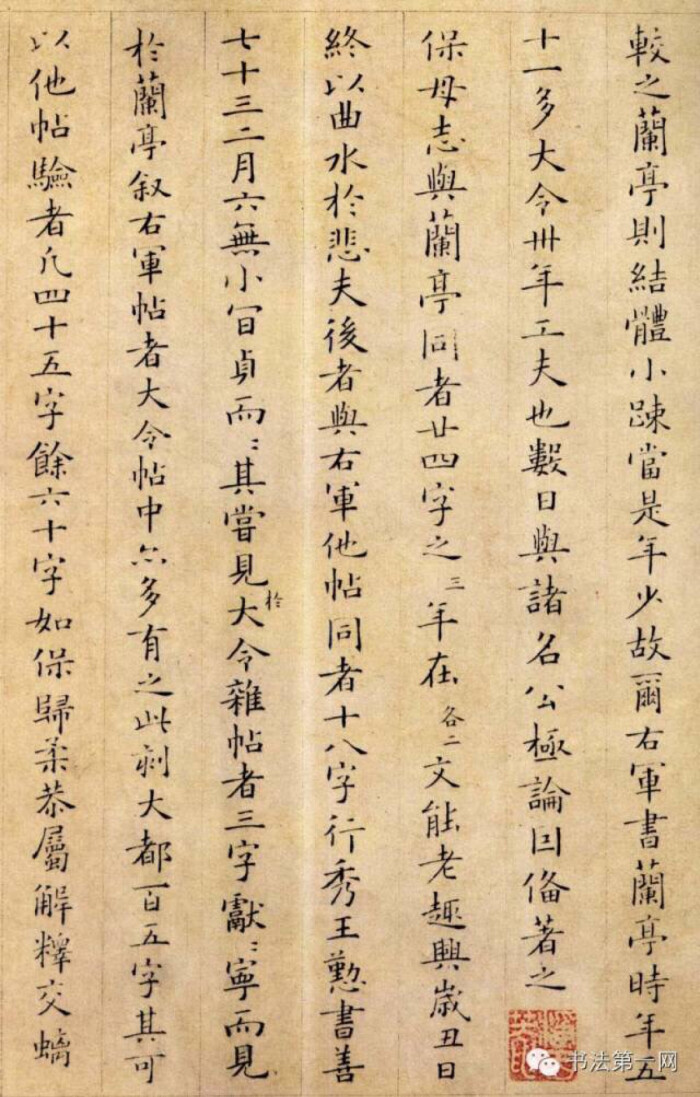 較之蘭亭則結體小踈當是年少故爾右軍書蘭亭時年五
十一多大令卅年工夫也數日與諸名公極論因備著之
保母志與蘭亭同者廿四字之三年在各二文能老趣興歲丑日
終以曲水於悲夫後者與右軍他帖同者十八字行秀王懃書善
七十三二月六無小冝貞而〻其嘗見於大令雜帖者三字獻〻寧而見
於蘭亭叙右軍帖者大令帖中亦多有之此刻大都百五字其可
以他帖驗者凡四十五字餘六十字如保歸柔恭屬解釋交螭
书法第一网